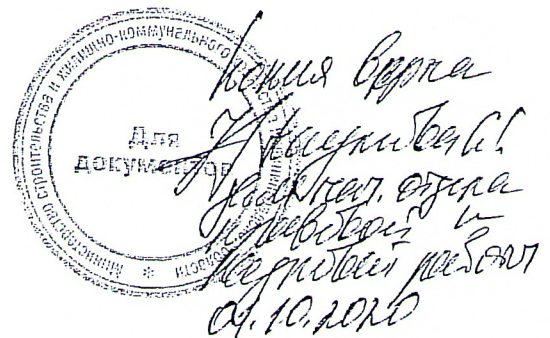 Министерство строительства и жилищно-коммунального
области
Для
документов
Копия верна
отдела
правовой и
кадровой работы
01.10.2020